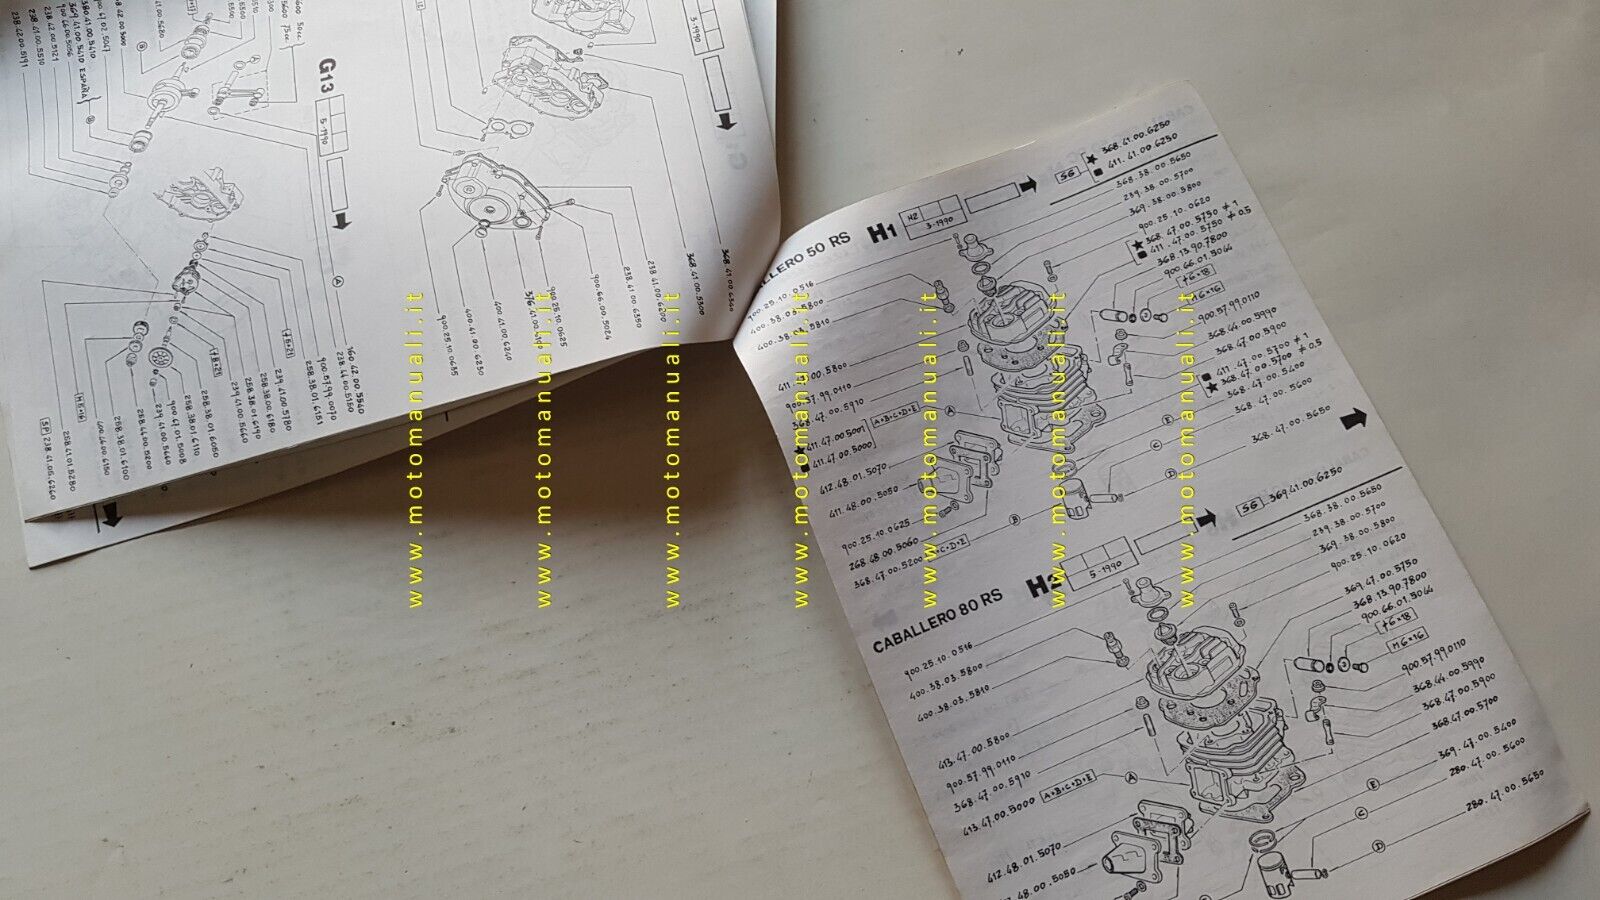 G13
5-1990
3-1990
238.42.00.5191
238.41.00.5510
238.42.00.5121
900.66.00.5056
369.41.00.5410 ESPAÑA
A
B
160.42.00.5560
238.44.00.5150
900.57.99.0070
258.38.01.6151
239.41.00.5780
258.38.00.6180
258.38.01.6190
239.41.00.5660
258.38.01.6050
258.38.01.6110
900.47.01.5008
239.41.00.5660
258.44.00.5200
258.38.01.6100
400.44.00.6150
258.41.01.5280
SP 238.41.05.6260
M8×16
368.41.00.6300
368.41.00.5300
238.41.00.6200
238.41.00.6350
900.66.00.5024
900.25.10.0625
400.41.00.6240
400.41.00.6230
900.25.10.0635
CABALLERO 50 RS
H1
H2
3-1990
SG
★ 368.41.00.6250
■ 411.41.00.6250
368.38.00.5650
239.38.00.5700
369.38.00.5800
900.25.10.0620
★ 368.47.00.5750 ≠ 1
■ 411.47.00.5750 ≠ 0.5
368.13.90.7800
900.66.01.5044
†6×18
M6×16
900.57.99.0110
368.44.00.5990
368.47.00.5900
■ 411.47.00.5700 ≠ 1
★ 368.47.00.5700 ≠ 0.5
368.47.00.5400
368.47.00.5600
368.47.00.5650
900.25.10.0516
400.38.03.5800
400.38.03.5810
900.57.99.0110
368.47.00.5910
★ 411.47.00.5001
■ 411.47.00.5000
A+B+C+D+E
412.48.01.5070
411.48.00.5050
900.25.10.0625
268.48.00.5060
368.47.00.5200
B+C+D+E
A
B
C
D
E
CABALLERO 80 RS
H2
5-1990
SG 369.41.00.6250
368.38.00.5650
239.38.00.5700
369.38.00.5800
900.25.10.0620
369.47.00.5750
368.13.90.7800
900.66.01.5044
†6×18
M6×16
900.57.99.0110
368.44.00.5990
368.47.00.5900
368.47.00.5700
369.47.00.5400
280.47.00.5600
280.47.00.5650
900.25.10.0516
400.38.03.5800
400.38.03.5810
413.47.00.5800
900.57.99.0110
368.47.00.5910
413.47.00.5000 A+B+C+D+E
412.48.01.5070
A
C
D
E
www.motomanuali.it
www.motomanuali.it
www.motomanuali.it
www.motomanuali.it
www.motomanuali.it
www.motomanuali.it
www.motomanuali.it